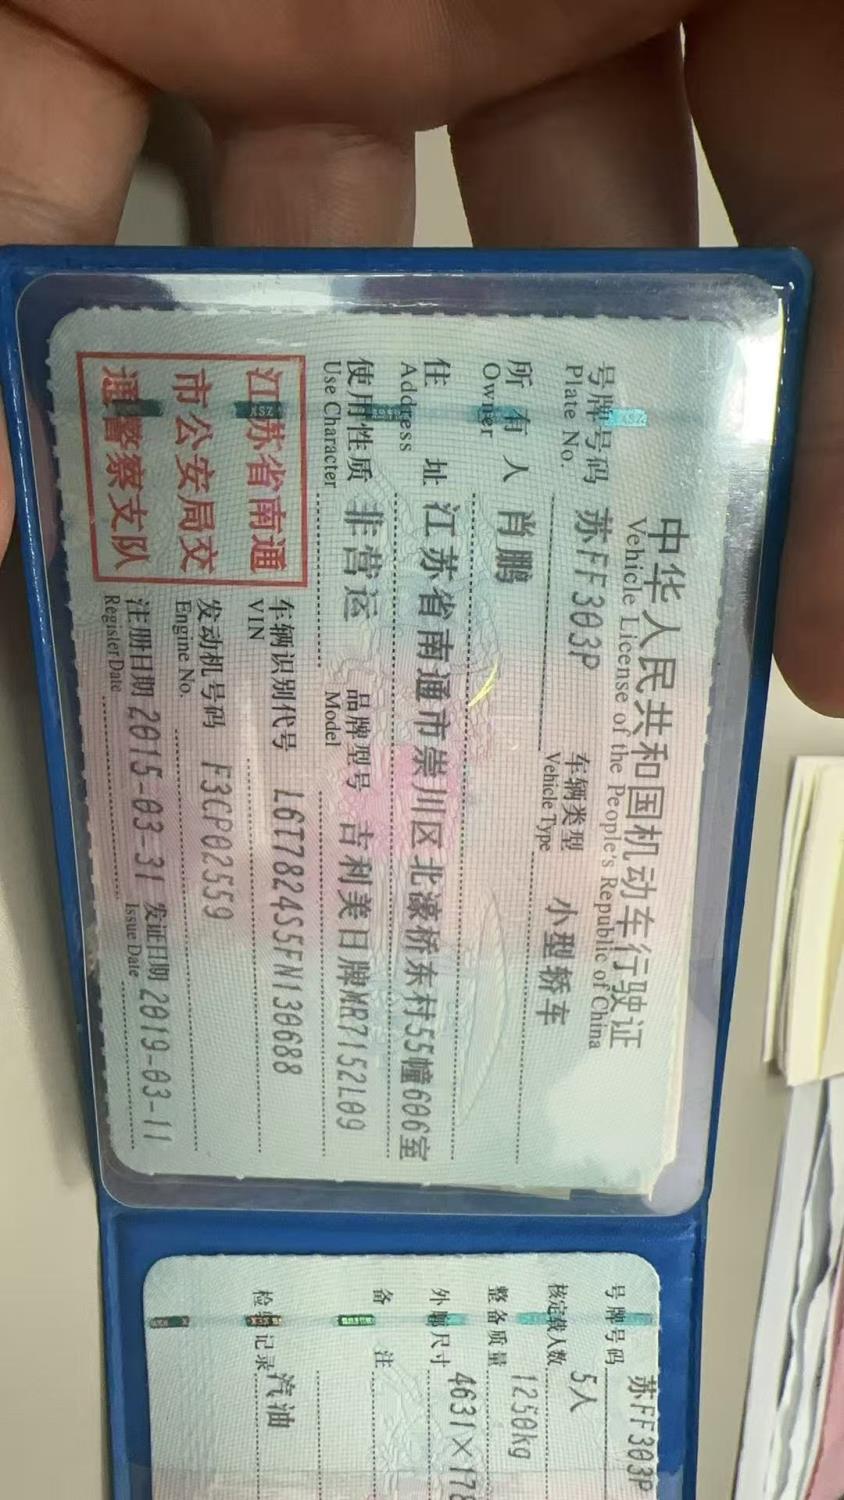 中华人民共和国机动车行驶证
Vehicle License of the People's Republic of China
号牌号码 苏FF303P 车辆类型 小型轿车
Plate No. Vehicle Type
所有人 肖鹏
Owner
住址 江苏省南通市崇川区北濠桥东村55幢606室
Address
使用性质 非营运 品牌型号 吉利美日牌MR7152L09
Use Character Model
江苏省南通
市公安局交
通警察支队
车辆识别代号 L6T7824S5FN130688
VIN
发动机号码 F3CP02559
Engine No.
注册日期 2015-03-31 发证日期 2019-03-11
Register Date Issue Date
号牌号码 苏FF303P
核定载人数 5人
整备质量 1250kg
外廓尺寸 4631×178
备注
检验记录 汽油